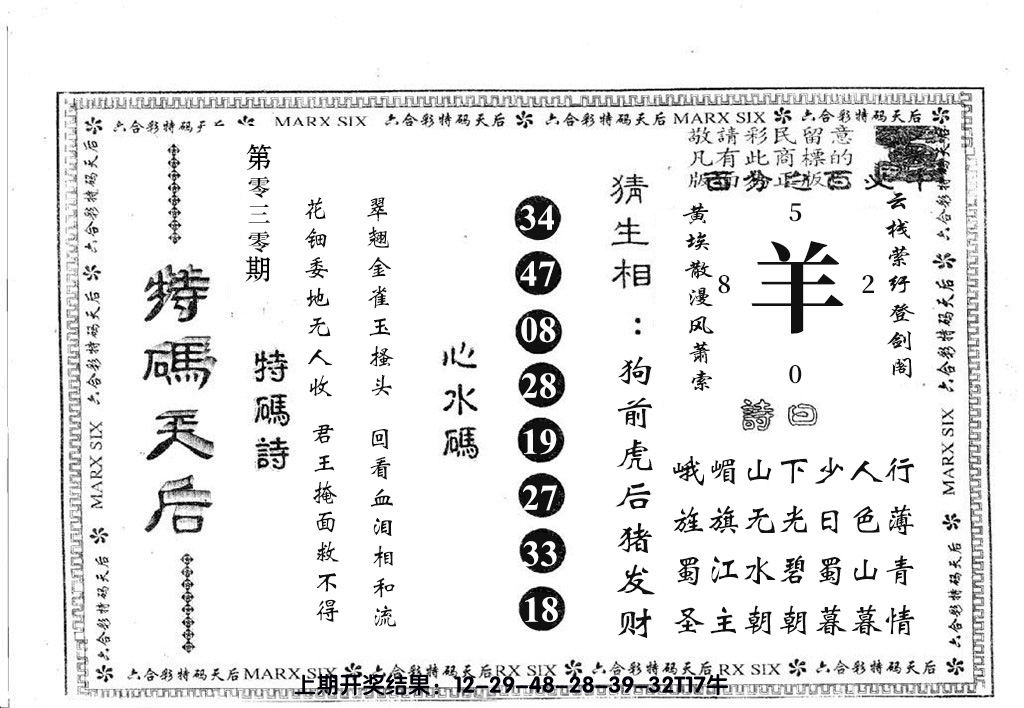 六合彩特码天后 MARX SIX 六合彩特码天后 六合彩特码天后 MARX SIX 六合彩特码天后
敬請彩民留意
凡有此商標的
版
正版
云栈萦纡登剑阁
黄埃散漫风萧索
5
8 羊 2
0
詩曰
峨嵋山下少人行
旌旗无光日色薄
蜀江水碧蜀山青
圣主朝朝暮暮情
猜生相：狗前虎后猪发财
34
47
08
28
19
27
33
18
心水碼
翠翘金雀玉搔头 回看血泪相和流
花钿委地无人收 君王掩面救不得
第零三零期
特碼詩
特碼天后
六合彩特码天后 六合彩特码天后 MARX SIX 六合彩特码天后
六合彩特码天后 六合彩特码天后 MARX SIX 六合彩特码天后
六合彩特码天后 MARX SIX 六合彩特码天后 RX SIX 六合彩特码天后 RX SIX 六合彩特码天后
上期开奖结果：12-29-48-28-39-32T17牛